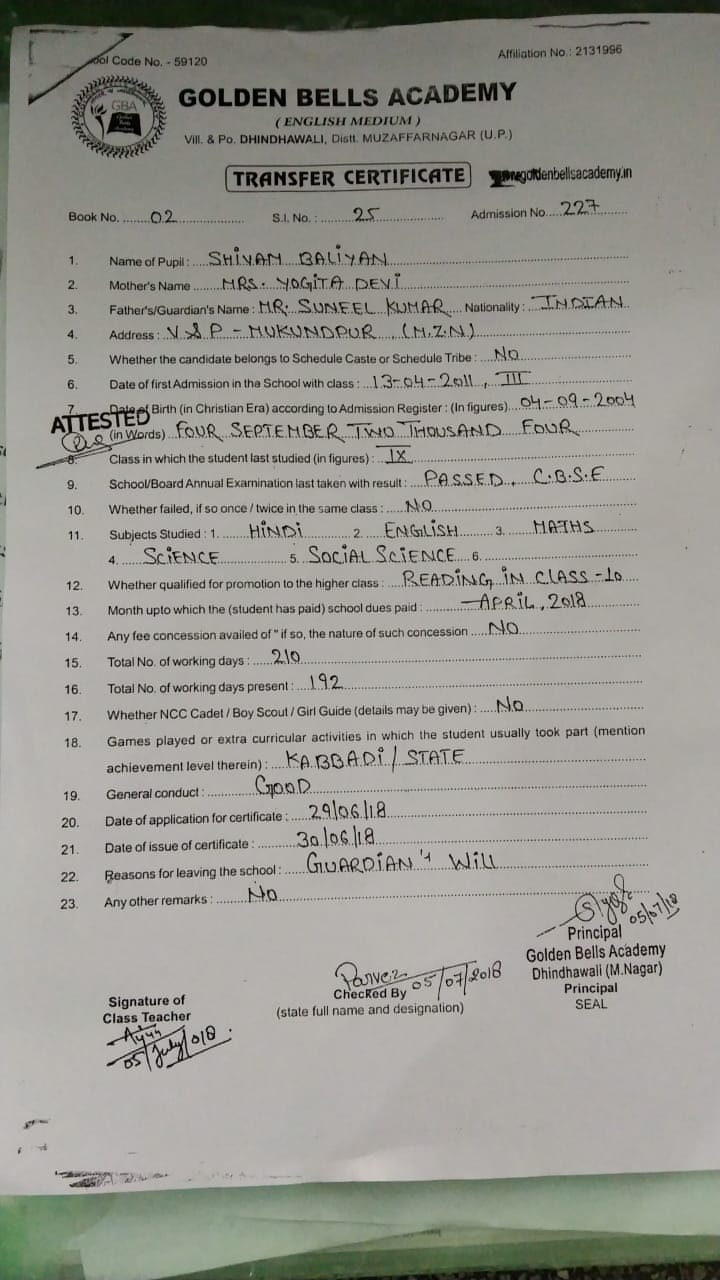 ool Code No. - 59120
Affiliation No.: 2131996
GBA
GOLDEN BELLS ACADEMY
( ENGLISH MEDIUM )
Vill. & Po. DHINDHAWALI, Distt. MUZAFFARNAGAR (U.P.)
TRANSFER CERTIFICATE
goldenbellsacademy.in
Book No. 02 S.I. No. : 25 Admission No. 227
1. Name of Pupil : SHIVAM BALIYAN
2. Mother's Name MRS. YOGITA DEVI
3. Father's/Guardian's Name : MR. SUNEEL KUMAR Nationality : INDIAN
4. Address : V&P - MUKUNDPUR (M.Z.N)
5. Whether the candidate belongs to Schedule Caste or Schedule Tribe : NO
6. Date of first Admission in the School with class : 13-04-2011, III
7. Date of Birth (in Christian Era) according to Admission Register : (In figures) 04-09-2004
ATTESTED
(in Words) FOUR SEPTEMBER TWO THOUSAND FOUR
8. Class in which the student last studied (in figures) : IX
9. School/Board Annual Examination last taken with result : PASSED, C.B.S.E
10. Whether failed, if so once / twice in the same class : NO
11. Subjects Studied : 1. HINDI 2. ENGLISH 3. MATHS
4. SCIENCE 5. SOCIAL SCIENCE 6.
12. Whether qualified for promotion to the higher class : READING IN CLASS-10
13. Month upto which the (student has paid) school dues paid : APRIL, 2018
14. Any fee concession availed of " if so, the nature of such concession NO
15. Total No. of working days : 210
16. Total No. of working days present : 192
17. Whether NCC Cadet / Boy Scout / Girl Guide (details may be given) : NO
18. Games played or extra curricular activities in which the student usually took part (mention
achievement level therein) : KABBADI / STATE
19. General conduct : GOOD
20. Date of application for certificate : 29/06/18
21. Date of issue of certificate : 30/06/18
22. Reasons for leaving the school : GUARDIAN'S WILL
23. Any other remarks : NO
05/07/18
Principal
Golden Bells Academy
Dhindhawali (M.Nagar)
Principal
SEAL
Parvez
Checked By 05/07/2018
(state full name and designation)
Signature of
Class Teacher
05/July/018.